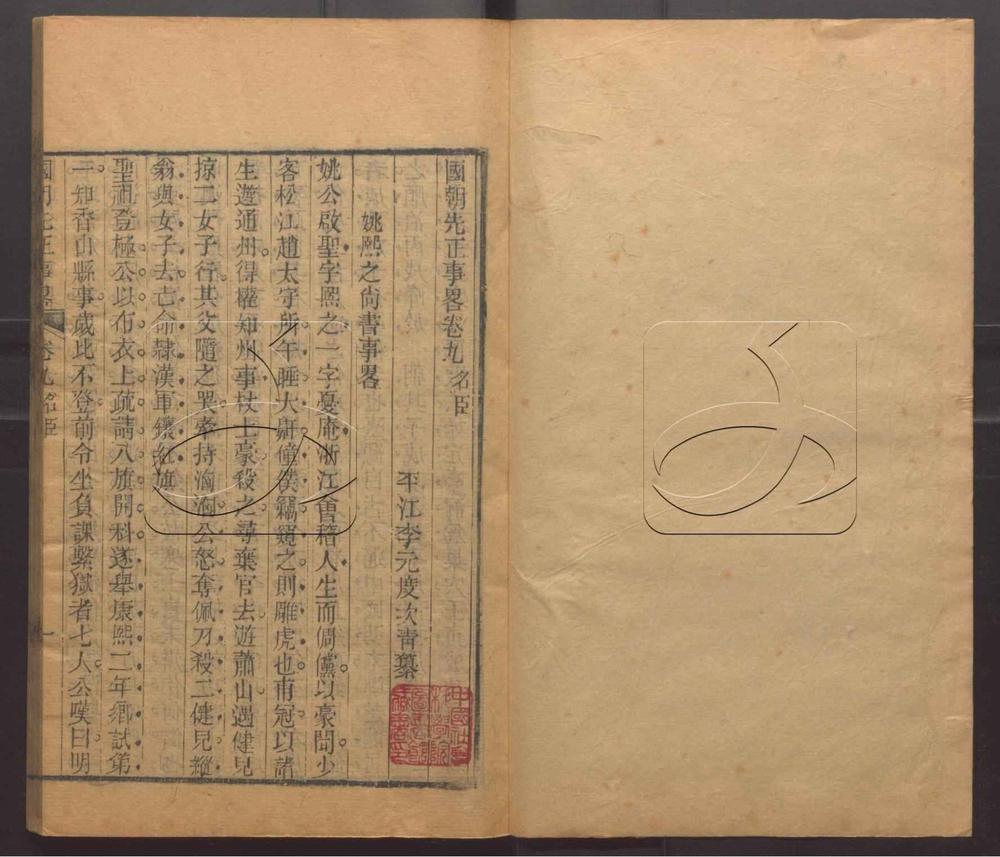 國朝先正事畧卷九 名臣
平江李元度次青纂
姚熙之尚書事畧
姚公啟聖字熙之一字憂庵浙江會稽人生而倜儻以豪聞少
客松江趙太守所午睡大鼾僮僕竊窺之則雕虎也甫冠以諸
生遊通州得權知州事杖土豪殺之尋棄官去遊蕭山遇健兒
掠二女子行其父隨之哭牽持洶洶公怒奪佩刀殺二健兒縱
翁與女子去亡命隸漢軍鑲紅旗
聖祖登極公以布衣上疏請八旗開科遂舉康熙二年鄉試第
一知香山縣事歲比不登前令坐負課繫獄者七人公嘆曰明
國朝先正事畧 卷九 名臣 一
中國社會科學院圖書館藏書印